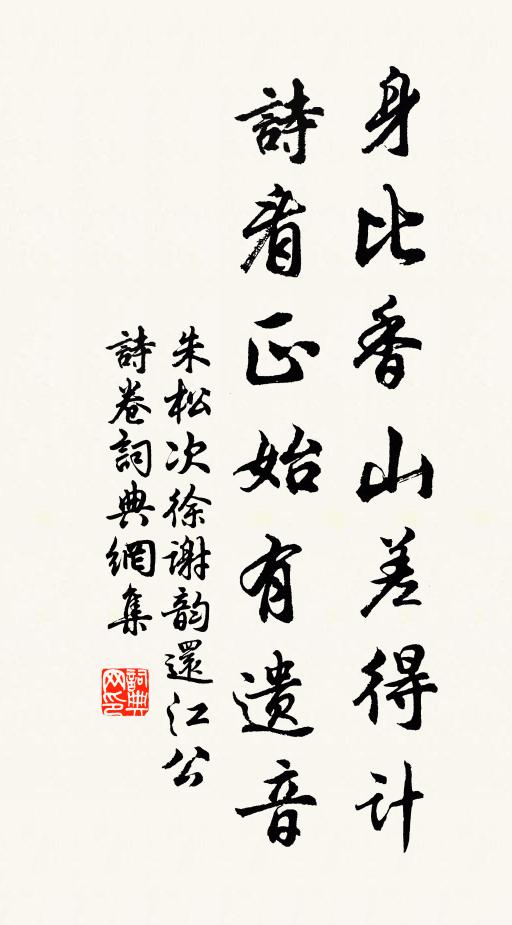 身比香山差得計
詩看正始有遺音
朱松次徐謝韵還江公
詩卷詞典網集
詞典网印